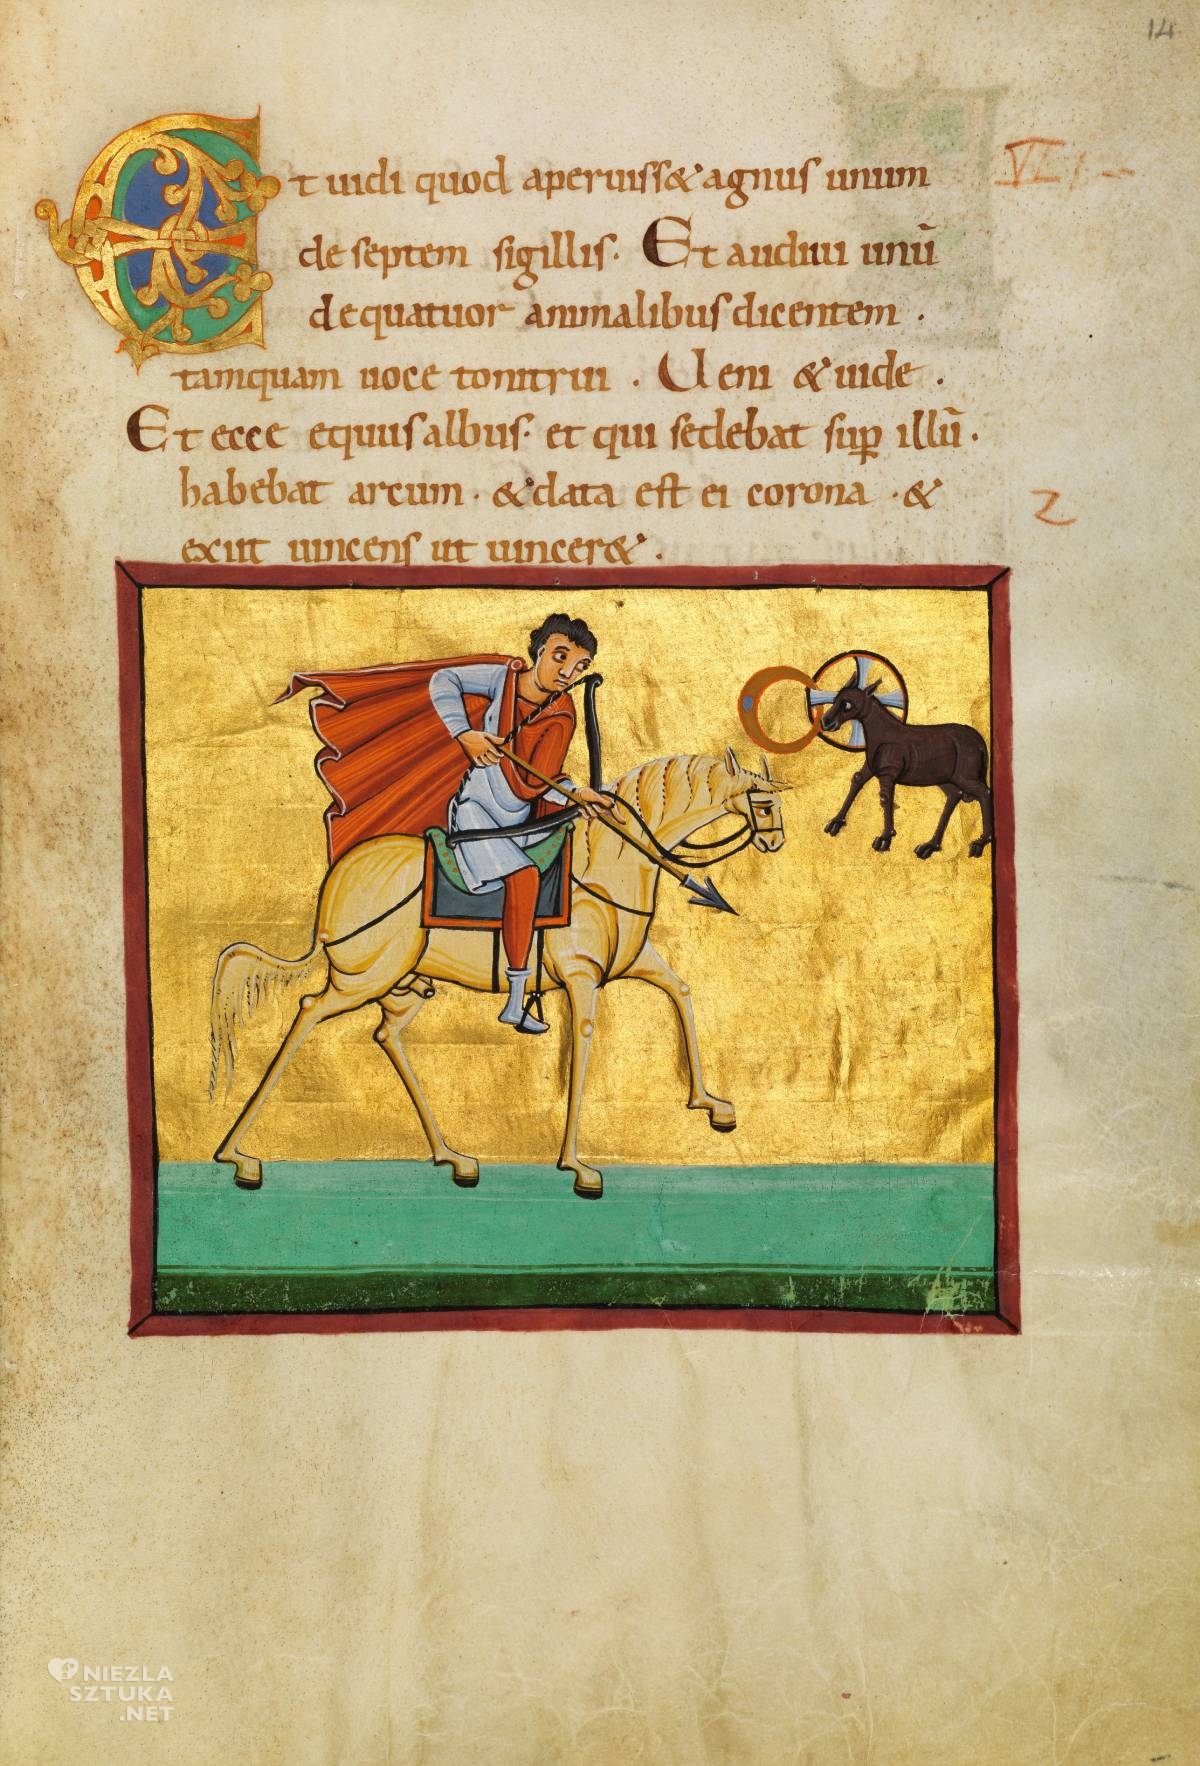 14
Et uidi quod aperuiss& agnus unum
VI
de septem sigillis. Et audiui unū
de quatuor animalibus dicentem .
tamquam uoce tonitrui . Ueni & uide .
Et ecce equus albus. et qui sedebat sup illū.
2
habebat arcum . & data est ei corona . &
exiit uincens ut uincer& .
NIEZLA
SZTUKA
.NET